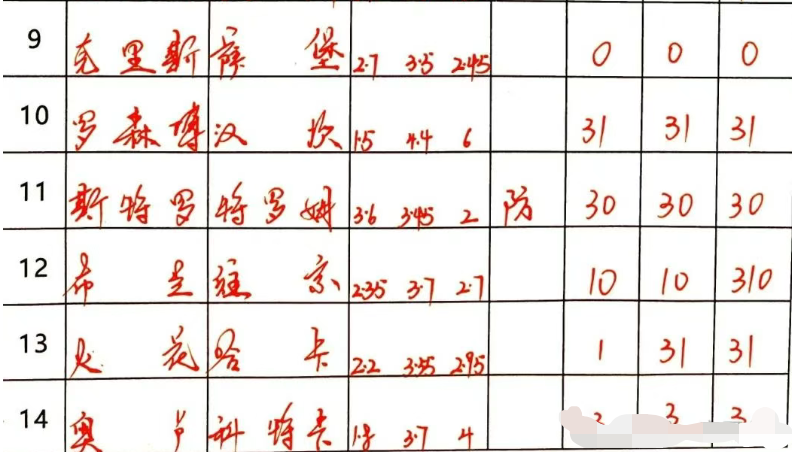 9 克里斯 薛堡 2.7 3.5 2.45 0 0 0
10 罗森博 汉坎 1.5 4.4 6 31 31 31
11 斯特罗 特罗姆 3.6 3.45 2 防 30 30 30
12 布兰 维京 2.35 3.7 2.7 10 10 310
13 火花 哈卡 2.2 3.35 2.95 1 31 31
14 奥卢 科特卡 1.8 3.7 4 3 3 3